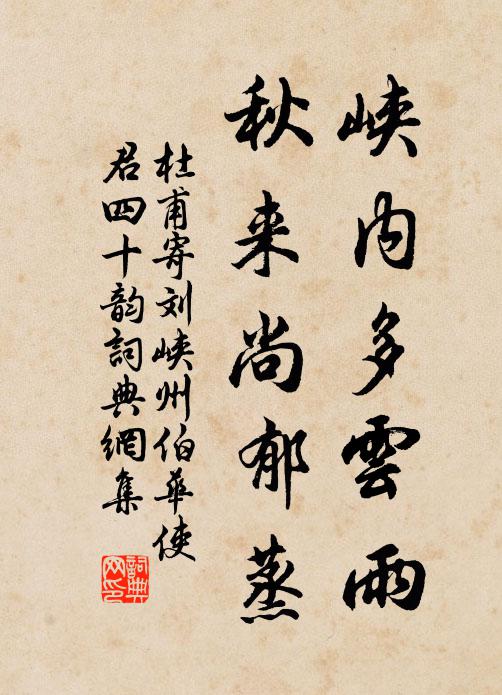 峡内多雲雨
秋来尚郁蒸
杜甫寄刘峡州伯華使
君四十韵詞典網集
詞典网印